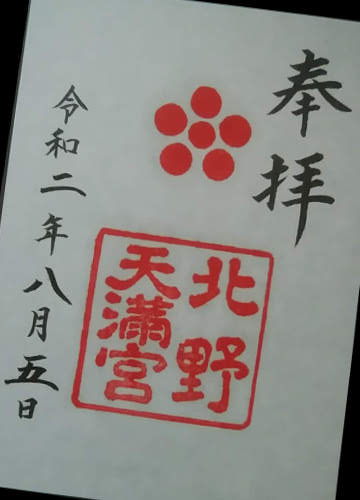 奉拝
北野
天満宮
令和二年八月五日